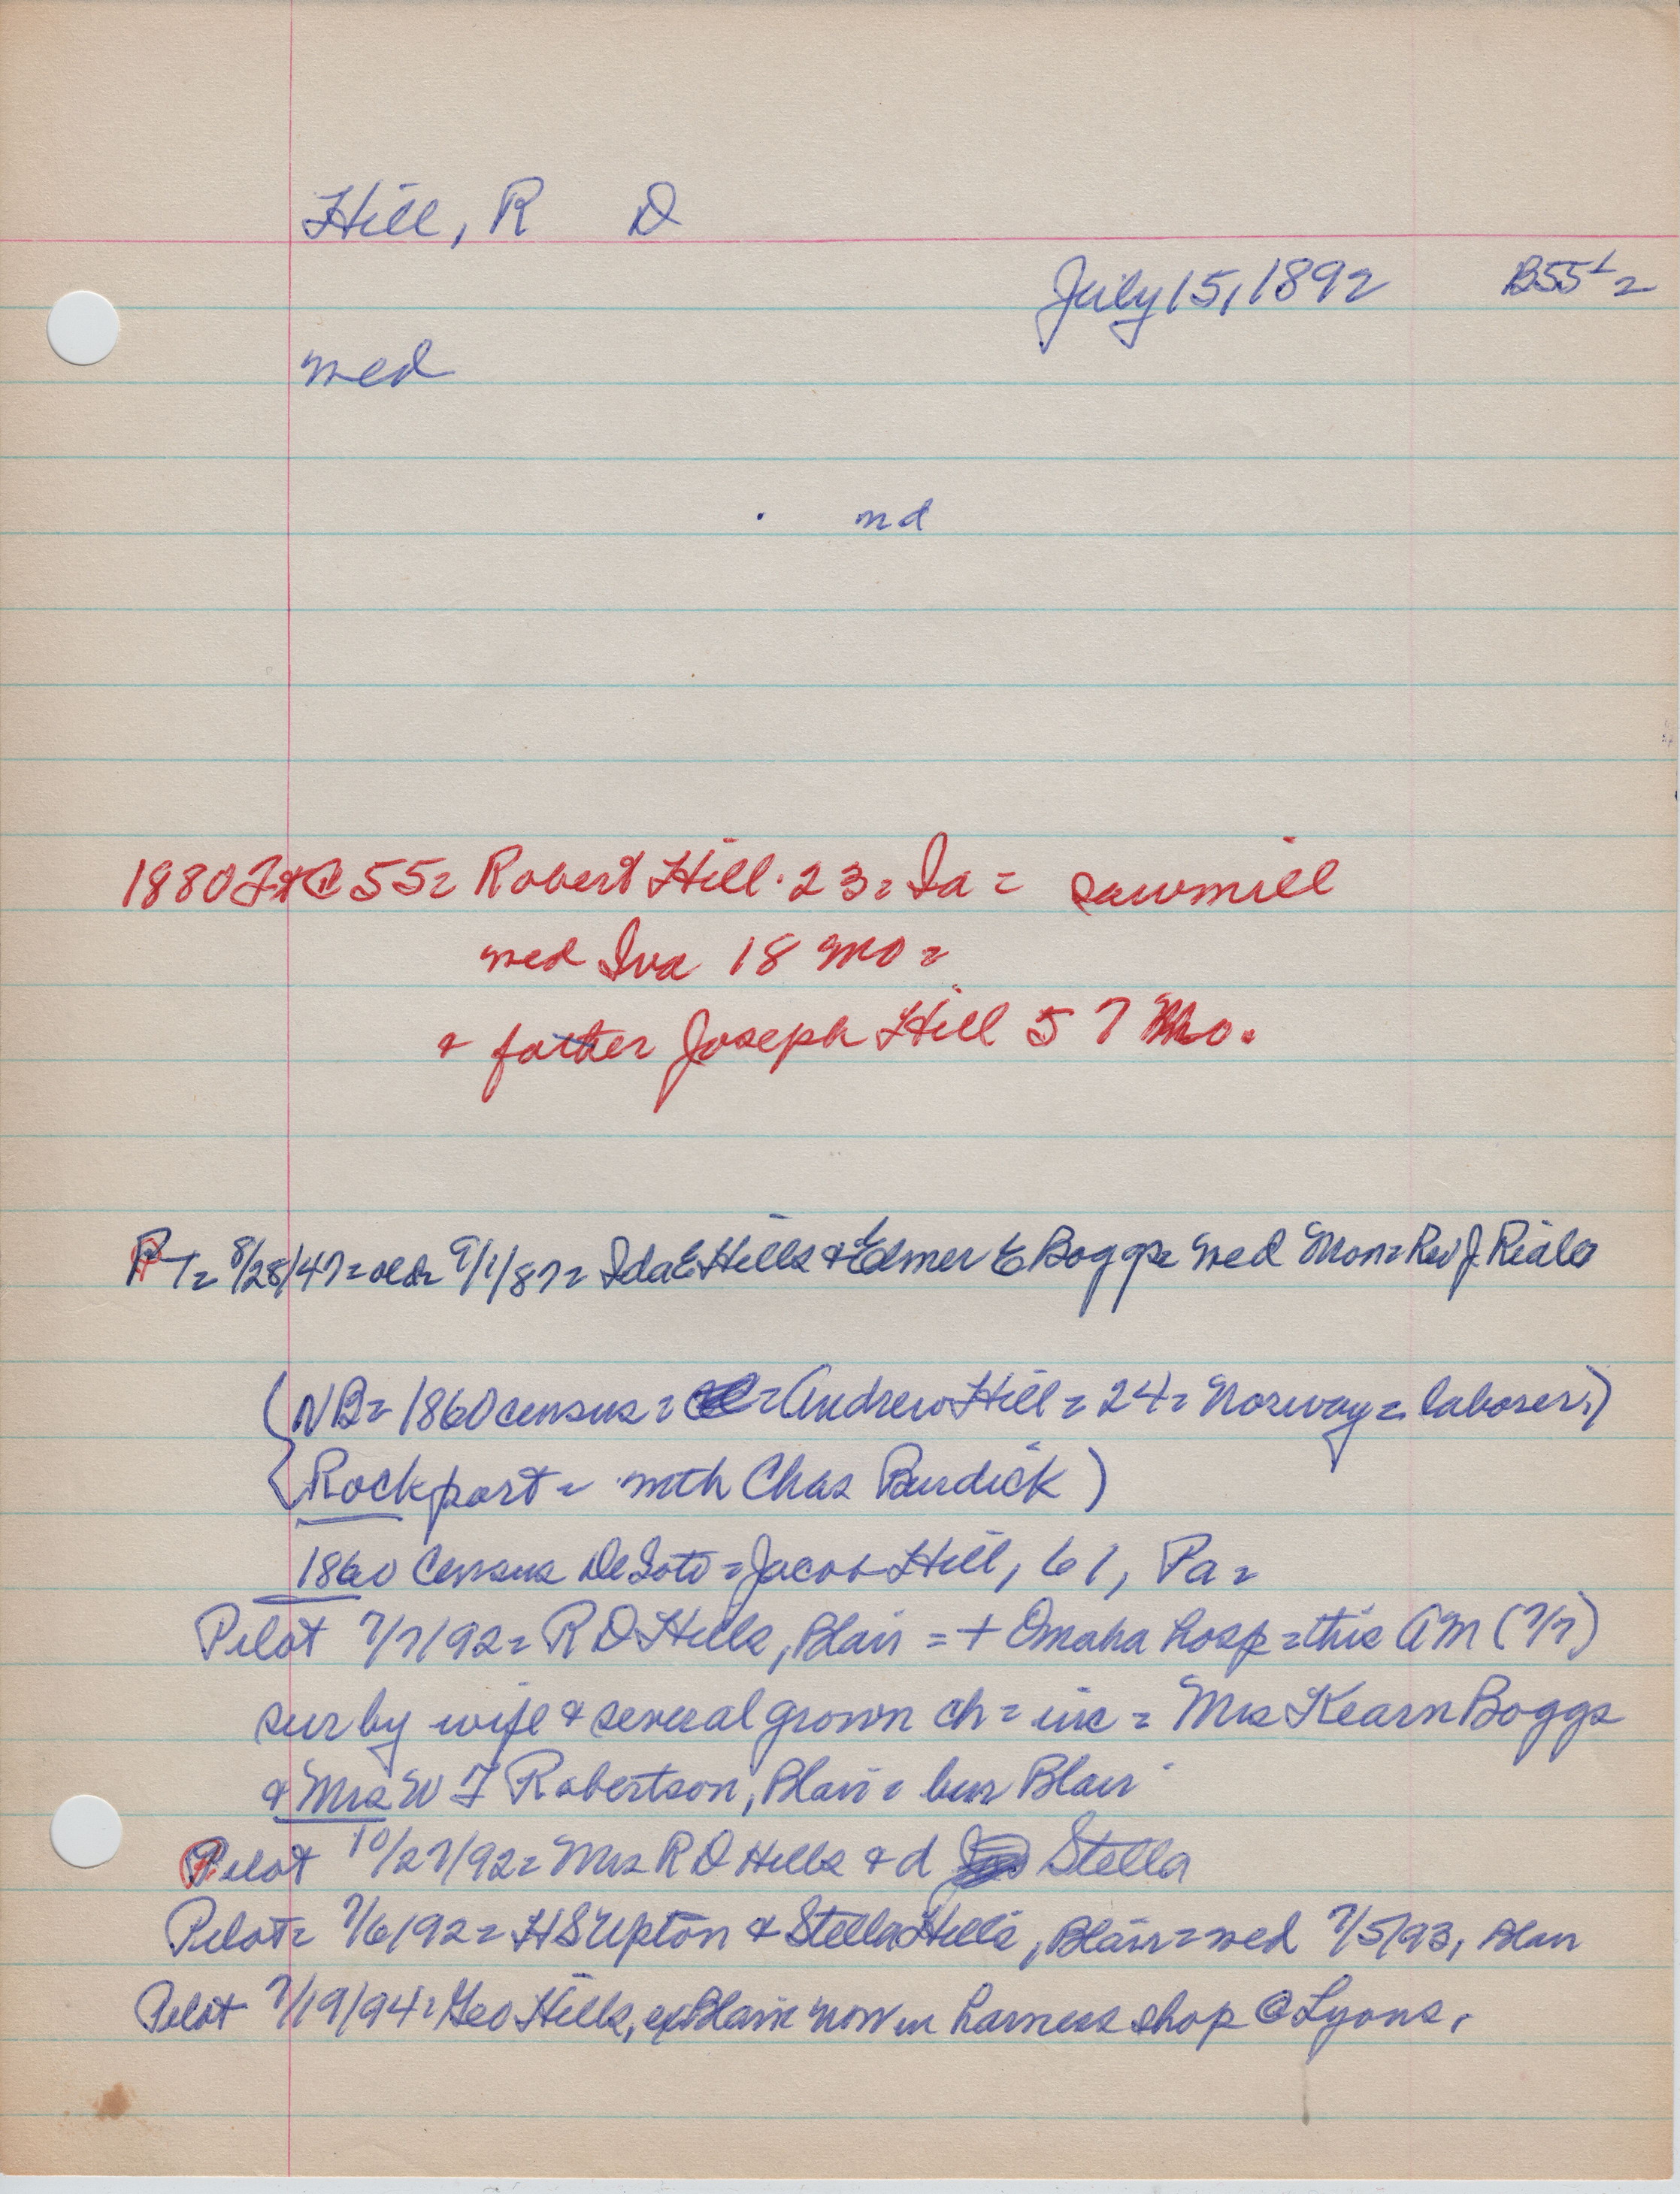 Hill, R D
July 15, 1892 B55 1/2
med
nd
1880 Ft C 55 = Robert Hill · 23 = Ia = sawmill
med Iva 18 Mo =
+ father Joseph Hill 57 Mo.
PT = 8/28/47 = old = 9/1/87 = Ida E Hills & Elmer E Boggs = med Mon = Rev J. Riale
(NB = 1860 census = = Andrew Hill = 24 = Norway = laborer.)
(Rockport = with Chas Burdick)
1860 Census DeSoto = Jacob Hill, 61, Pa =
Pilot 7/7/92 = R D Hills, Blair = + Omaha hosp = this AM (7/7)
sur by wife & several grown ch = inc = Mrs Kearn Boggs
& Mrs W F Robertson, Blair = bur Blair
Pilot 10/27/92 = Mrs R D Hills & d Stella
Pilot = 7/6/92 = H S Upton & Stella Hills, Blair = med 7/5/93, Blair
Pilot 7/19/94 = Geo Hills, ex Blair now in harness shop @ Lyons.